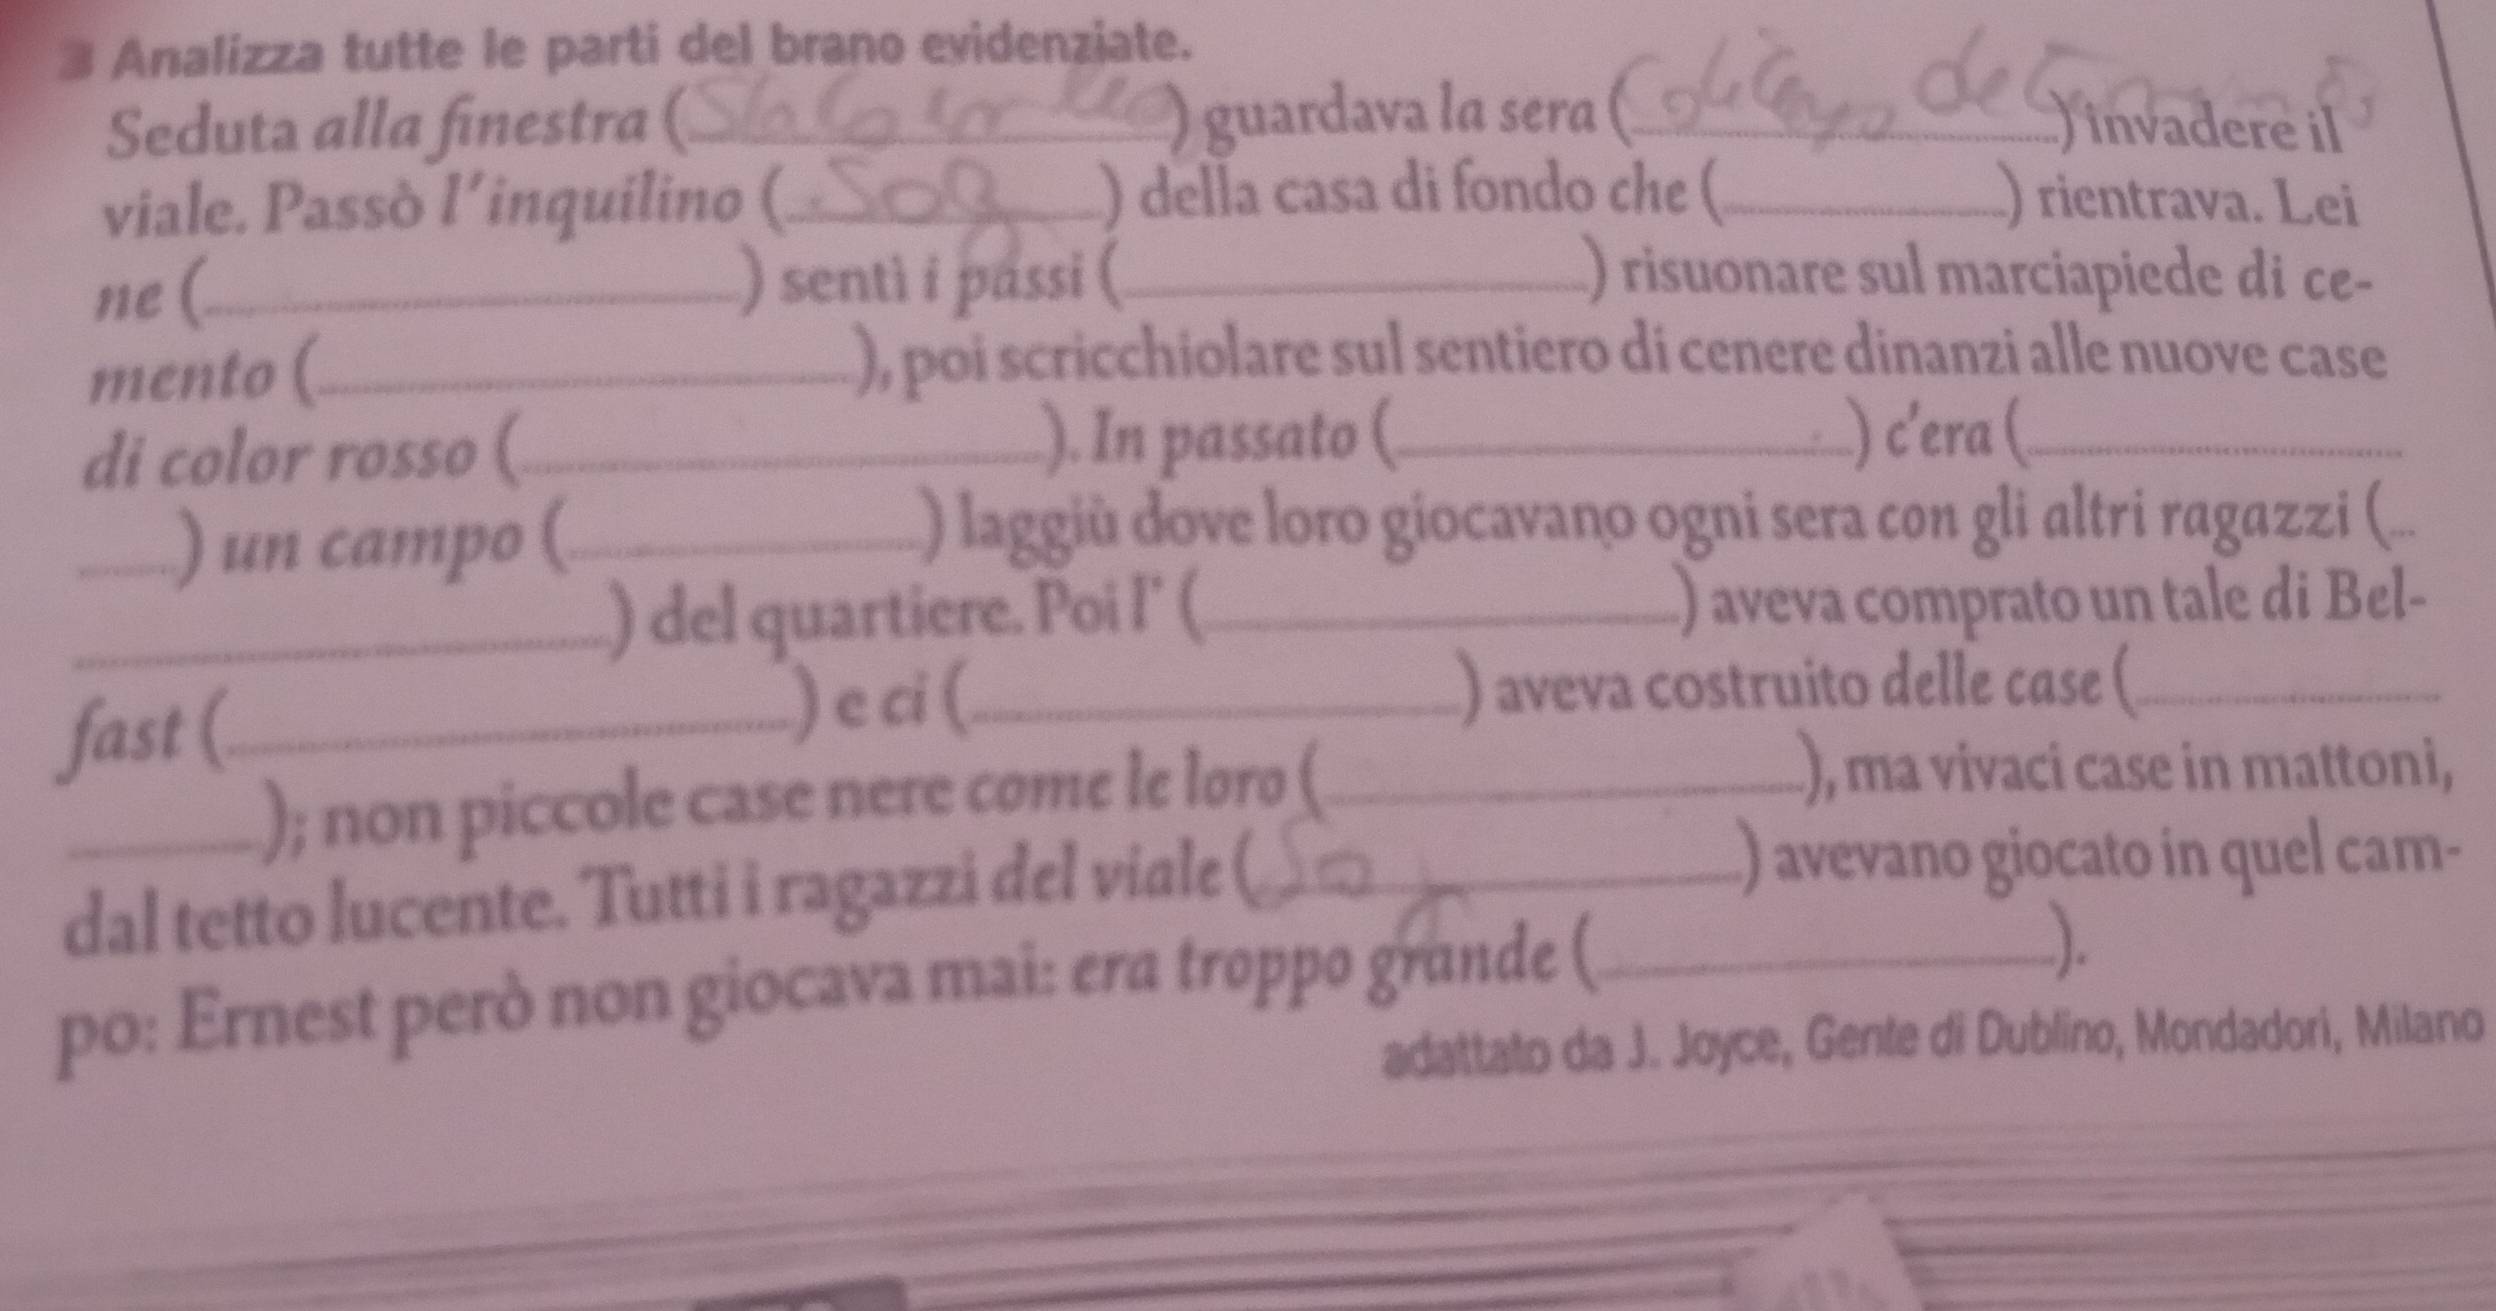 3 Analizza tutte le parti del brano evidenziate.
Seduta alla finestra (..............) guardava la sera (..............) invadere il
viale. Passò l'inquilino (.....Sog.....) della casa di fondo che (..............) rientrava. Lei
ne (..............) sentì i passi (..............) risuonare sul marciapiede di ce-
mento (..............), poi scricchiolare sul sentiero di cenere dinanzi alle nuove case
di color rosso (..............). In passato (..............) c'era (..............
.......) un campo (..............) laggiù dove loro giocavano ogni sera con gli altri ragazzi (...
..............) del quartiere. Poi l' (..............) aveva comprato un tale di Bel-
fast (..............) e ci (..............) aveva costruito delle case (..............
..........); non piccole case nere come le loro (..............), ma vivaci case in mattoni,
dal tetto lucente. Tutti i ragazzi del viale (..............) avevano giocato in quel cam-
po: Ernest però non giocava mai: era troppo grande (..............).
adattato da J. Joyce, Gente di Dublino, Mondadori, Milano